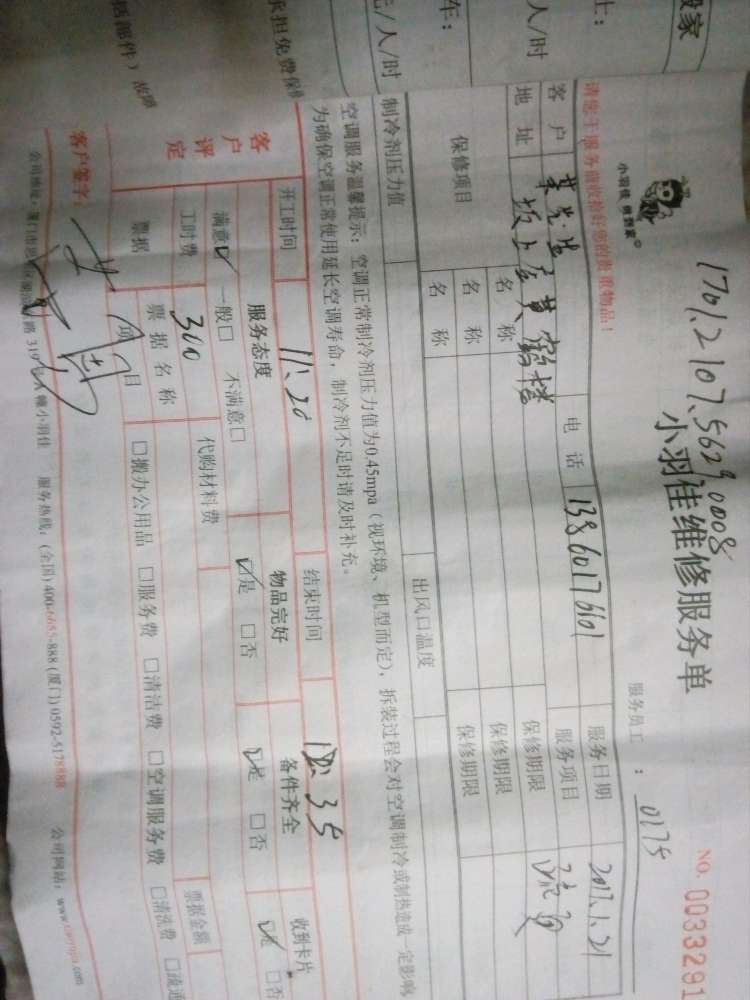 搬家
士:
人/时
车:
元/人/时
承担免费保
括部件）故障
1701.2107.5629.0008
小羽佳 微管家©
小羽佳维修服务单
NO. 0033291
服务员工 : 0175
请您于服务前收拾好您的贵重物品!
客户 先生 电话 13860176601 服务日期 2017.1.21
地址 坂上 黄鹤楼 服务项目
保修项目 名称 保修期限
名称 保修期限
名称 保修期限
制冷剂压力值 出风口温度
空调服务温馨提示: 空调正常制冷剂压力值为0.45mpa（视环境、机型而定），拆装过程会对空调制冷或制热造成一定影响
为确保空调正常使用延长空调寿命，制冷剂不足时请及时补充。
开工时间 11:20 结束时间 35
客户评定 服务态度 物品完好 备件齐全 收到卡片
满意☑ 一般□ 不满意□ ☑是 □否 ☑是 □否 ☑是 □否
工时费 300 代购材料费 票据金额
票据 票据名称
项目 □搬办公用品 □服务费 □清洁费 □空调服务费 □清洗费 □疏通
客户签字:
公司地址: 厦门市思明区 路 319号 小羽佳 服务热线: (全国) 400-6655-888 (厦门) 0592-5178888 公司网站: www. .com